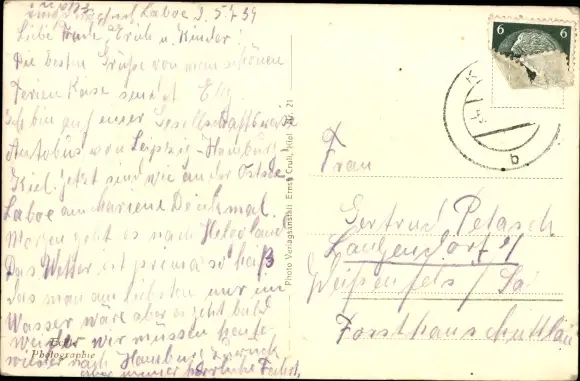 Laboe d. 5.7.39
Liebe Trude, Erich u. Kinder!
Die besten Grüße von einer schönen
Ferien Reise sendet Elly
Ich bin auf einer Gesellschaftsreise
Autobus von Leipzig-Hamburg
Kiel. Jetzt sind wir an der Ostsee
Laboe am Marine Denkmal.
Morgen geht es nach Helgoland
Das Wetter ist prima so heiß
das man am liebsten nur im
Wasser wäre aber es geht bald
weiter wir müssen heute
wieder nach Hamburg zurück
aber immer herrliche Fahrt.
Echte
Photographie
Photo Verlagsanstalt Ernst Crull, Kiel 21
6 6
b
Frau
Gertrud Petasch
Langendorf
Weißenfels / Sa.
Forsthaus